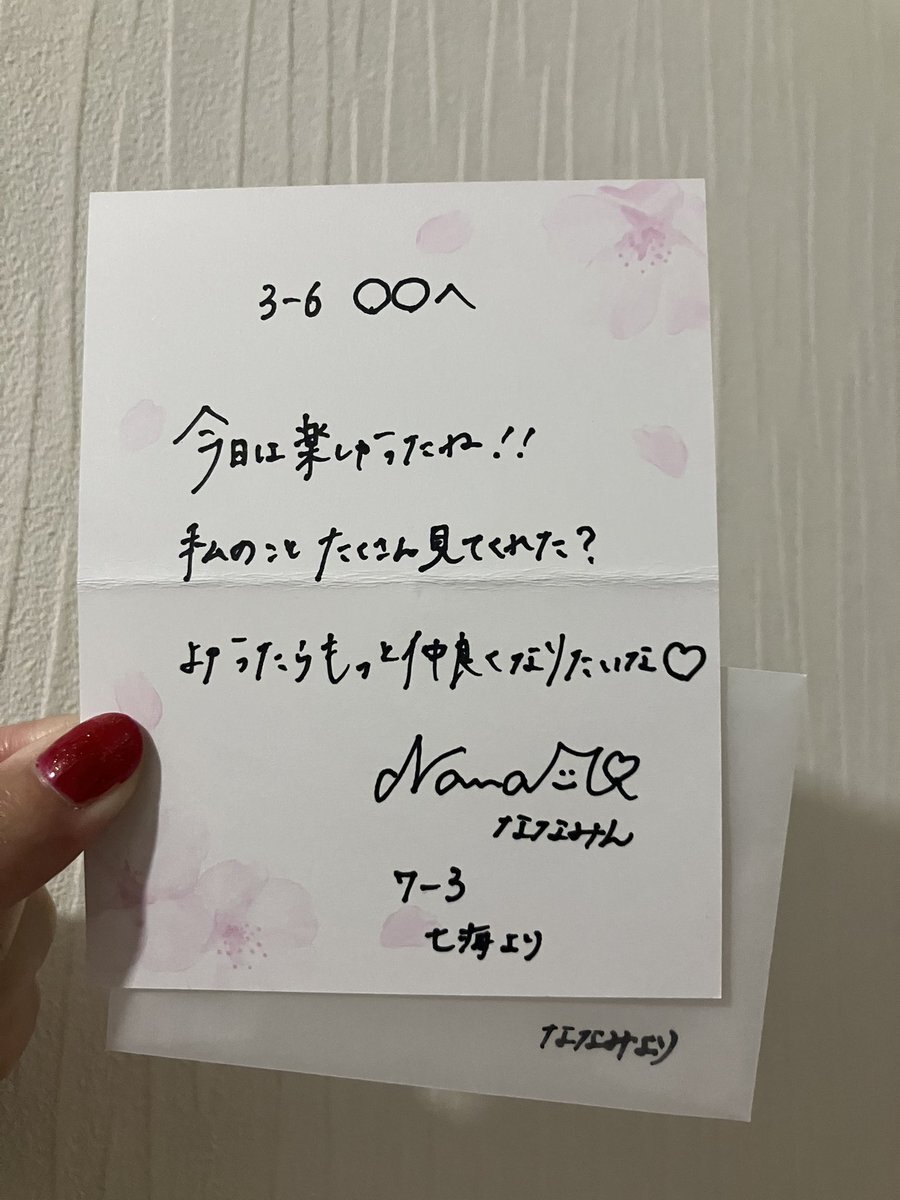 3-6 〇〇へ
今日は楽しかったね!!
私のこと たくさん見てくれた?
よかったらもっと仲良くなりたいな♡
Nana
ななみん
7-3
七海より
ななみより